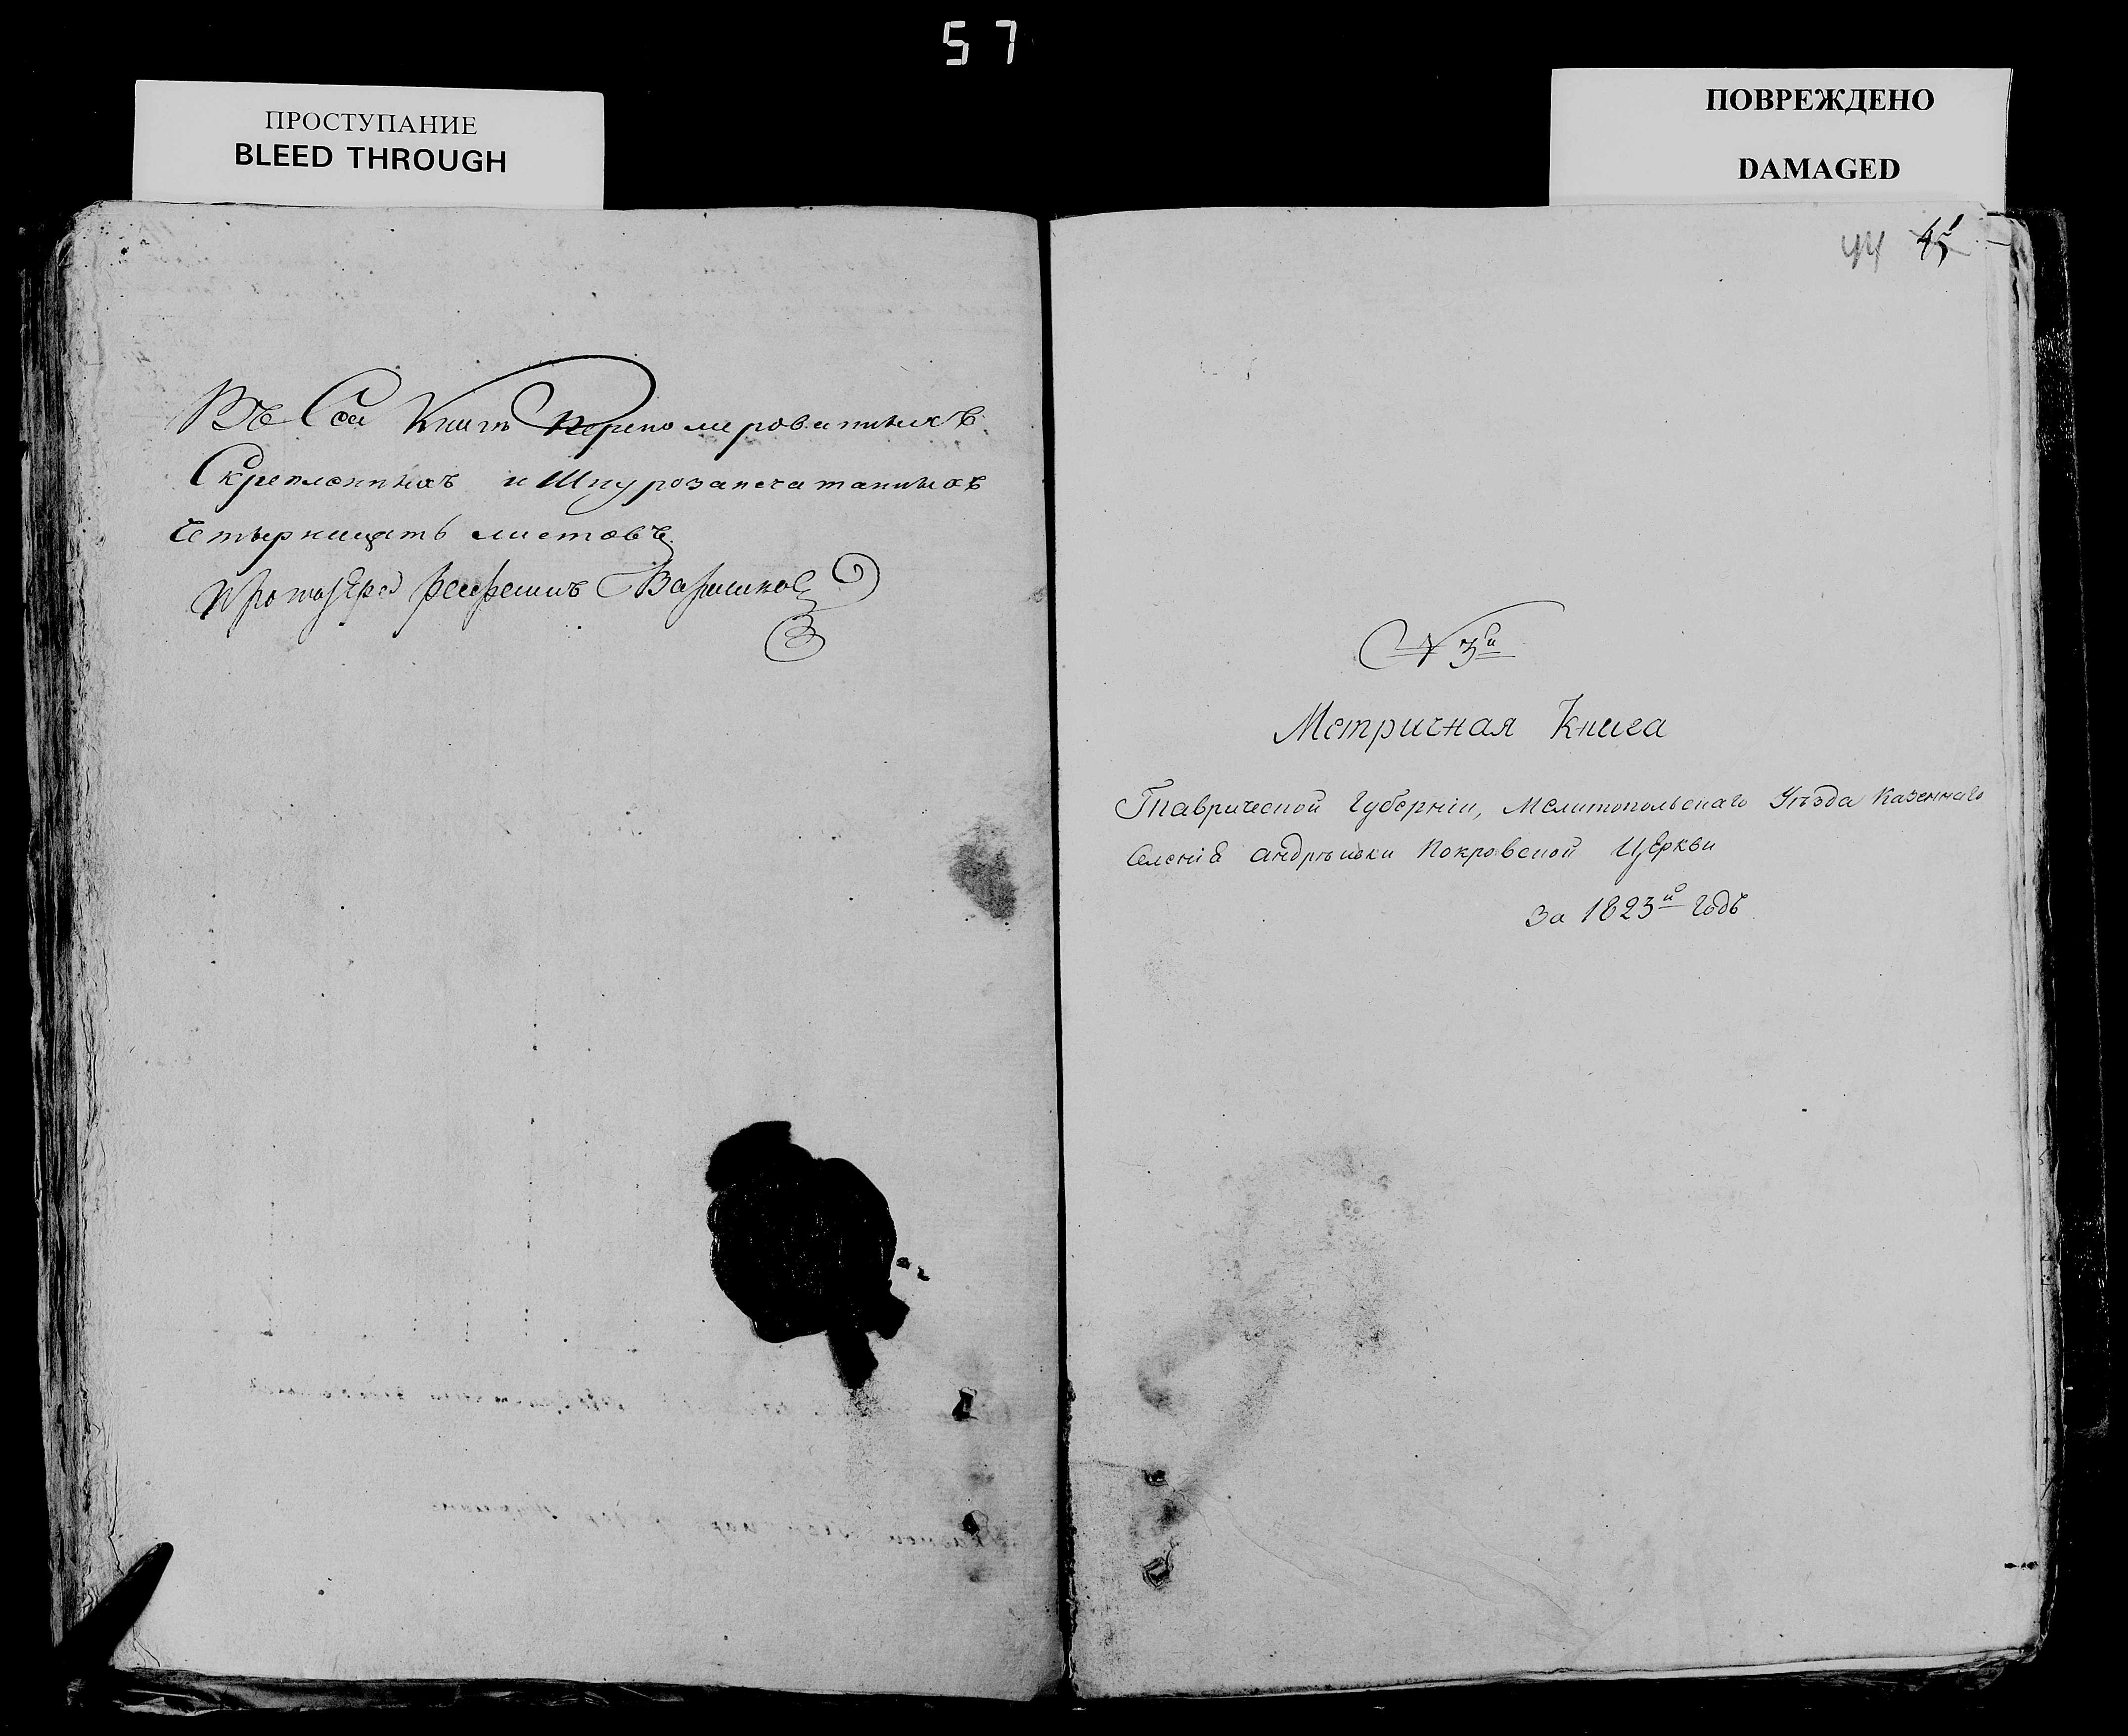 57
ПРОСТУПАНИЕ
BLEED THROUGH
ПОВРЕЖДЕНО
DAMAGED
44 45
Въ Сей Книгѣ Переномерованныхъ
Скрепленныхъ и Шнурозапечатанныхъ
Четырнацать листовъ
Протоіерей
N 3й
Метричная Книга
Таврической Губерніи, Мелитопольскаго Уѣзда Казеннаго
Селенія Андрѣевки Покровской Церкви
За 1823й Годъ